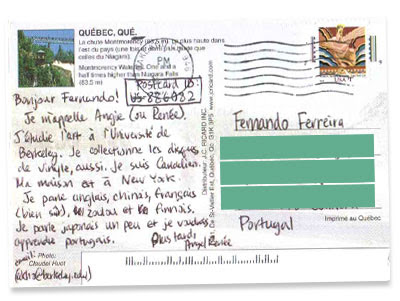 QUÉBEC, QUÉ.
La chute Montmorency (83,5 m). La plus haute dans
l'est du pays (une fois et demi plus haute que
celles du Niagara).
Montmorency Waterfalls. One and a
half times higher than Niagara Falls
(83.5 m)
PM
USA
Postcard ID:
US-886082
Bonjour Fernando!
Je m'appelle Angie (ou Renée).
J'étudie l'art à l'Université de
Berkeley. Je collectionne les disques
de vinyle, aussi. Je suis Canadien.
Ma maison est à New York.
Je parle anglais, chinois, français
(bien sûr), zoulou et finnois.
Je parle japonais un peu et je voudrais
apprendre portugais.
plus tard,
Angel Renée
email:
@berkeley.edu)
Photo:
Claudel Huot
Distributeur J.C. RICARD INC
Fernando Ferreira
Portugal
Imprimé au Québec